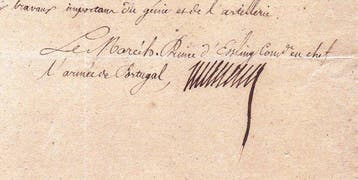 travaux important du génie et de l'artillerie.
Le Maréch. Prince d'Essling Comdt en chef
l'armée de Portugal,